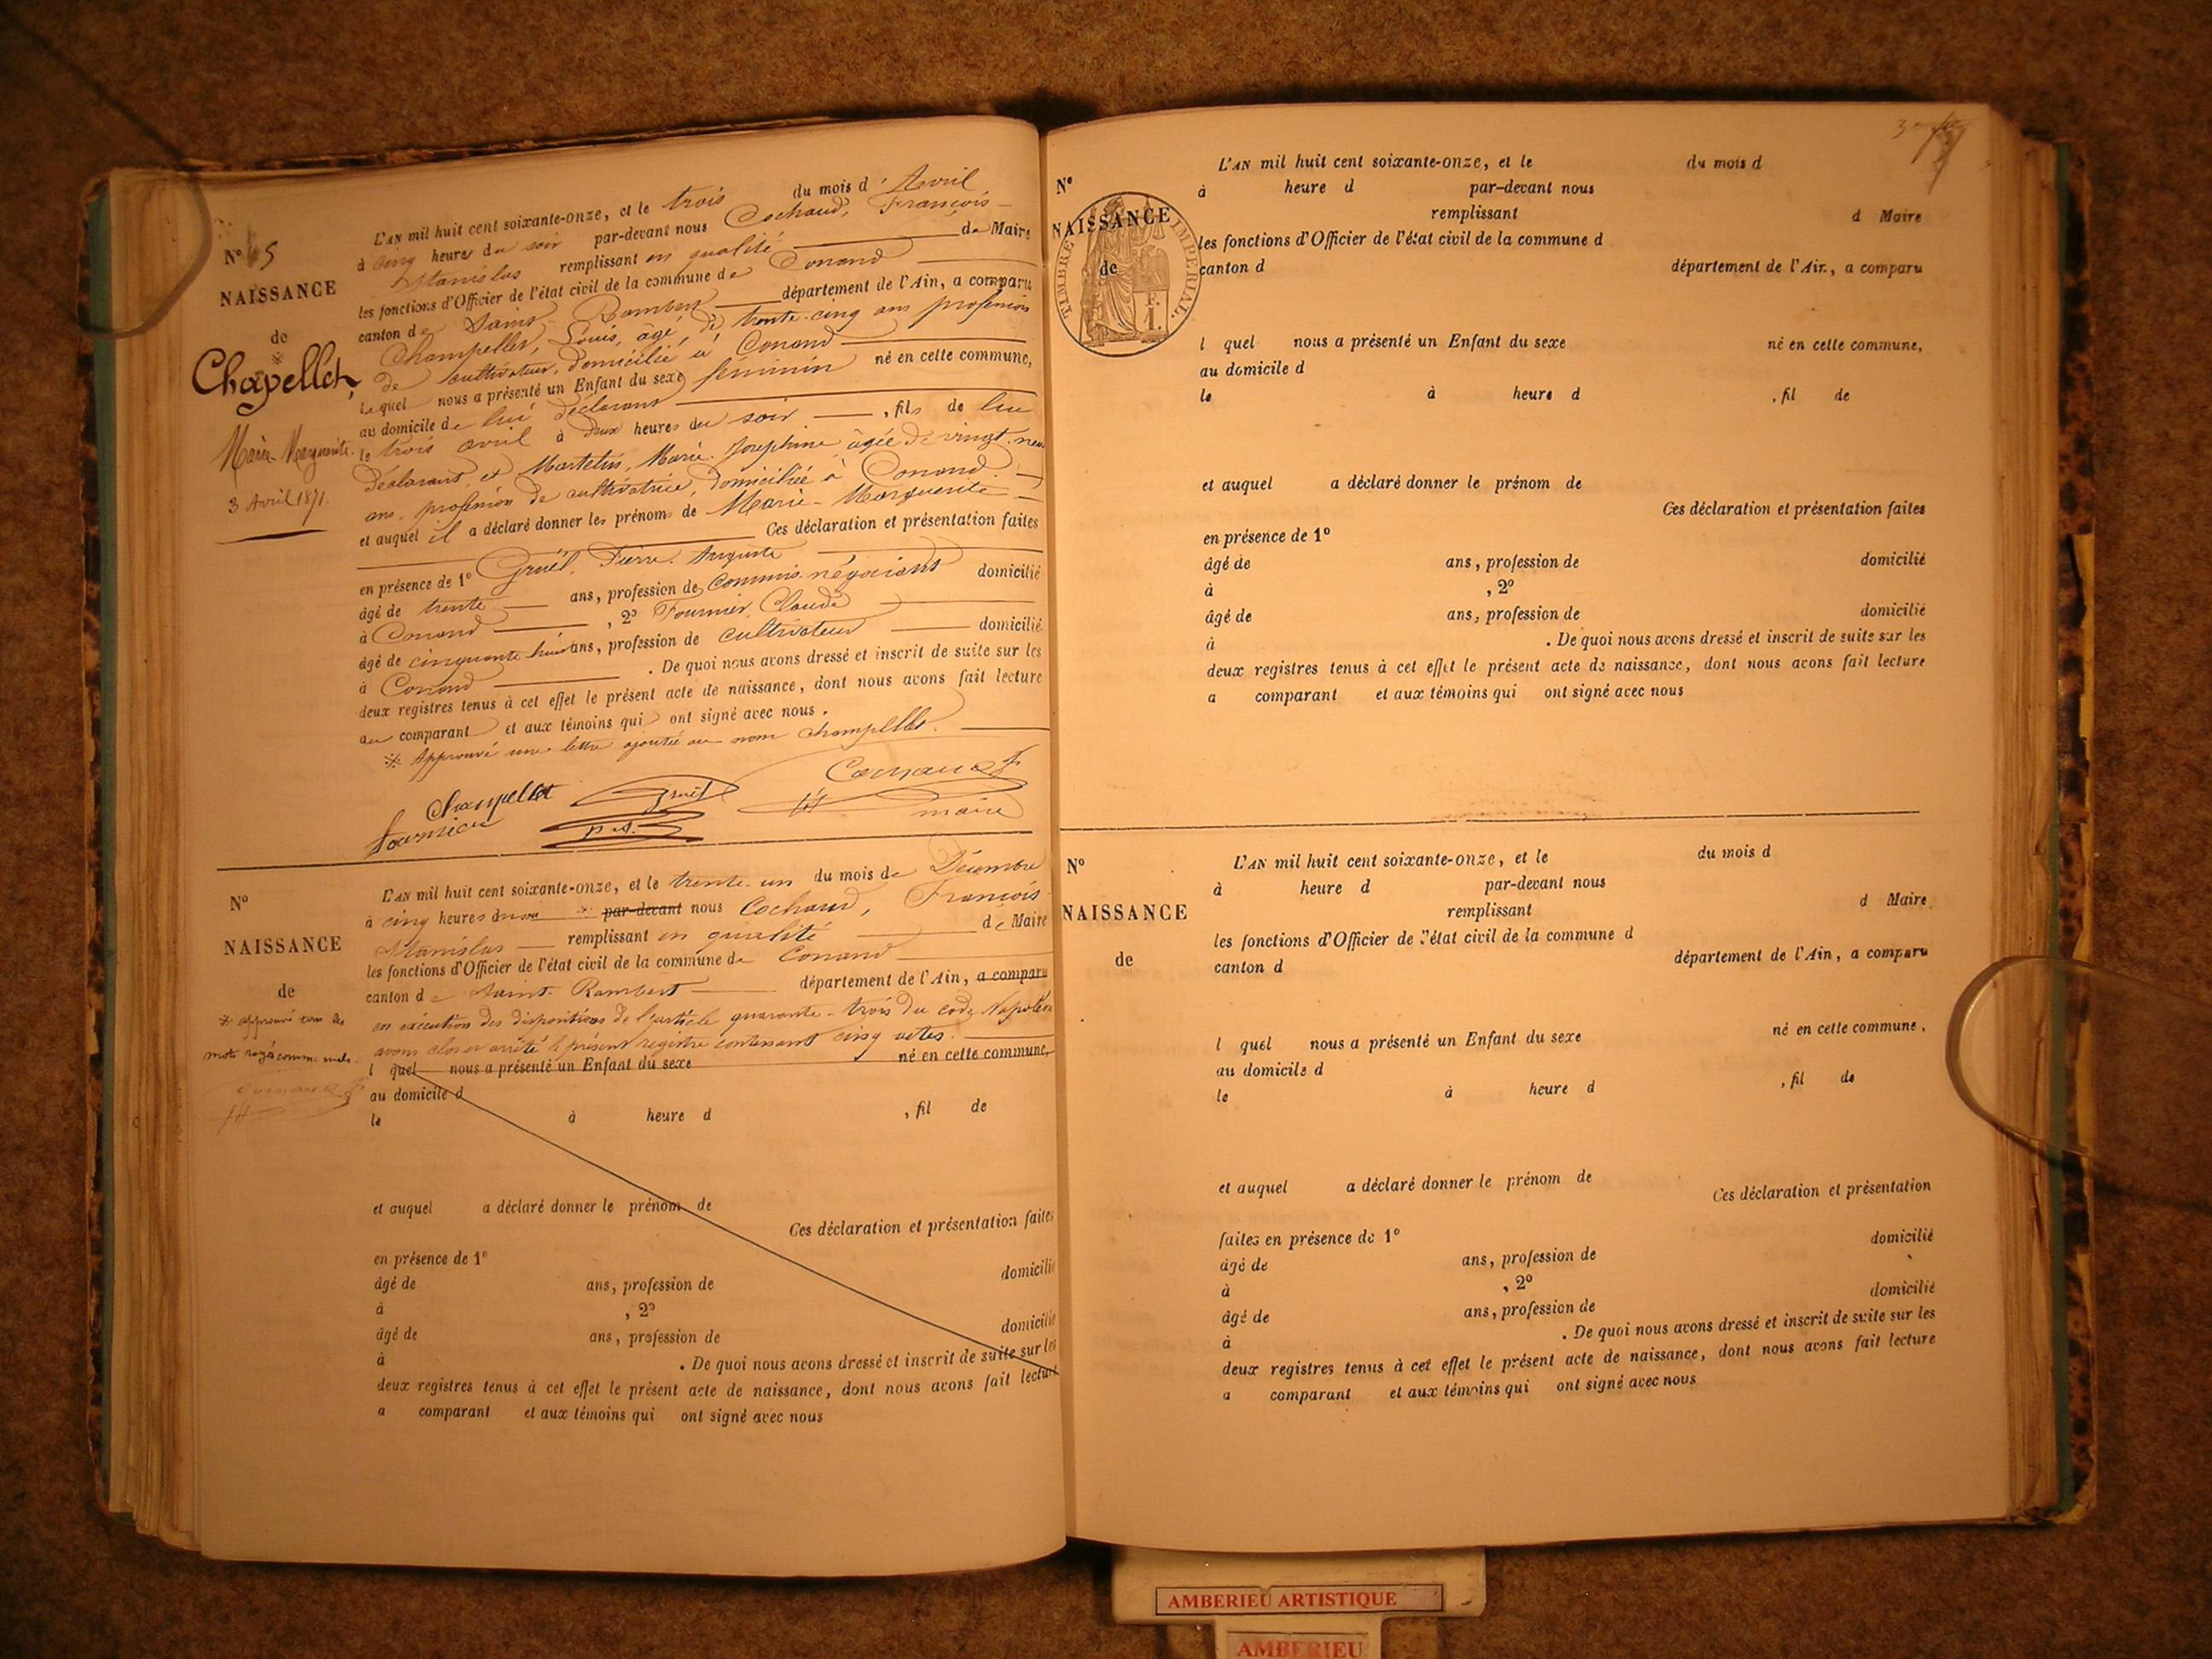 N° 5
NAISSANCE
de
※
Chapellet,
Marie-Marguerite.
3 Avril 1871.
L'AN mil huit cent soixante-onze, et le trois du mois d'Avril
à cinq heures du soir par-devant nous Cochaud, François-
Stanislas remplissant en qualité de Maire
les fonctions d'Officier de l'état civil de la commune de Conand
canton de Saint-Rambert département de l'Ain, a comparu
Champellet, Louis, âgé de trente-cinq ans profession
de cultivateur, domicilié à Conand
lequel nous a présenté un Enfant du sexe féminin né en cette commune,
au domicile de lui déclarant
le trois avril à deux heures du soir , fils de lui
déclarant, et Marie-Josephine âgée de vingt-neuf
ans, profession de cultivatrice, domiciliée à Conand.
et auquel il a déclaré donner les prénoms de Marie-Marguerite
Ces déclaration et présentation faites
en présence de 1° Gruël, Pierre Auguste
âgé de trente ans, profession de Commis-négociant domicilié
à Conand , 2° Fournier Claude
âgé de cinquante huit ans, profession de cultivateur domicilié
à Conand . De quoi nous avons dressé et inscrit de suite sur les
deux registres tenus à cet effet le présent acte de naissance, dont nous avons fait lecture
au comparant et aux témoins qui ont signé avec nous.
※ Approuvé une lettre ajoutée au nom Champellet.
Champellet Gruël Cochaud f
Fournier maire
N°
NAISSANCE
de
※ approuvé tous les
mots rayés comme nuls.
Cochaud f
L'AN mil huit cent soixante-onze, et le trente-un du mois de Décembre
à cinq heures du soir ※ par-devant nous Cochaud, François
Stanislas remplissant en qualité de Maire
les fonctions d'Officier de l'état civil de la commune de Conand
canton de Saint-Rambert département de l'Ain, a comparu
en exécution des dispositions de l'article quarante-trois du code Napoléon
avons clos et arrêté le présent registre contenant cinq actes.
l quel nous a présenté un Enfant du sexe né en cette commune,
au domicile d
le à heure d , fil de
et auquel a déclaré donner le prénom de
Ces déclaration et présentation faites
en présence de 1°
âgé de ans, profession de domicilié
à , 2°
âgé de ans, profession de domicilié
à . De quoi nous avons dressé et inscrit de suite sur les
deux registres tenus à cet effet le présent acte de naissance, dont nous avons fait lecture
a comparant et aux témoins qui ont signé avec nous
N°
NAISSANCE
de
TIMBRE IMPERIAL.
L'AN mil huit cent soixante-onze, et le du mois d
à heure d par-devant nous
remplissant d Maire
les fonctions d'Officier de l'état civil de la commune d
canton d département de l'Ain, a comparu
l quel nous a présenté un Enfant du sexe né en cette commune,
au domicile d
le à heure d , fil de
et auquel a déclaré donner le prénom de
Ces déclaration et présentation faites
en présence de 1°
âgé de ans, profession de domicilié
à , 2°
âgé de ans, profession de domicilié
à . De quoi nous avons dressé et inscrit de suite sur les
deux registres tenus à cet effet le présent acte de naissance, dont nous avons fait lecture
a comparant et aux témoins qui ont signé avec nous
N°
NAISSANCE
de
L'AN mil huit cent soixante-onze, et le du mois d
à heure d par-devant nous
remplissant d Maire
les fonctions d'Officier de l'état civil de la commune d
canton d département de l'Ain, a comparu
l quel nous a présenté un Enfant du sexe né en cette commune,
au domicile d
le à heure d , fil de
et auquel a déclaré donner le prénom de
Ces déclaration et présentation
faites en présence de 1°
âgé de ans, profession de domicilié
à , 2°
âgé de ans, profession de domicilié
à . De quoi nous avons dressé et inscrit de suite sur les
deux registres tenus à cet effet le présent acte de naissance, dont nous avons fait lecture
a comparant et aux témoins qui ont signé avec nous
AMBERIEU ARTISTIQUE
AMBERIEU